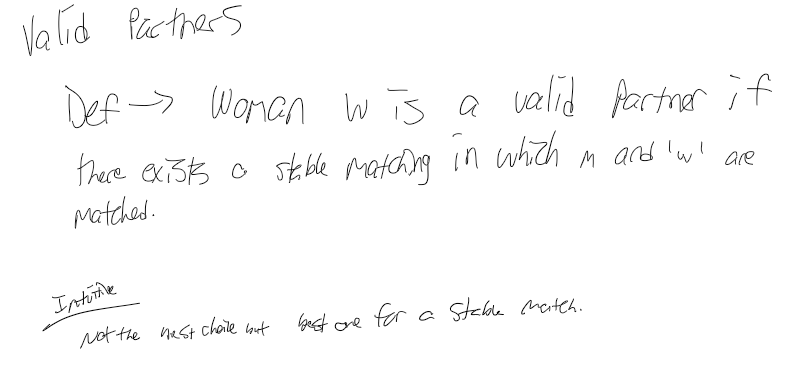 Valid Partners
Def → Woman w is a valid partner if
there exists a stable matching in which m and 'w' are
matched.
Intuitive
Not the best choice but best one for a stable match.